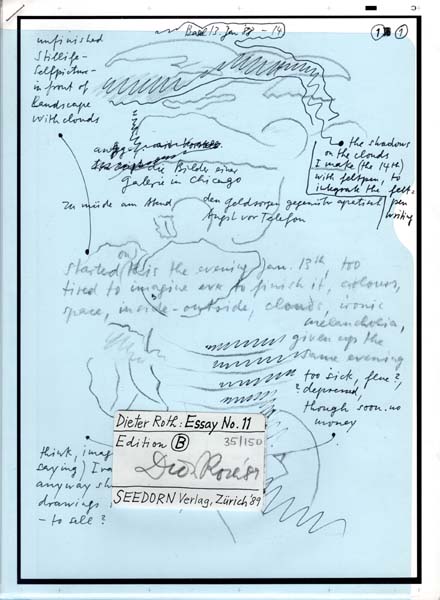 Basel 13. Jan '88 - 14
1 1
unfinished
Stillife-
Selfpicture-
in front of
Landscape
with clouds
the shadows
on the clouds
I make (the 14th)
with feltpen, to
integrate the felt-
pen
writing
die Bilder einer
Galerie in Chicago
zu müde am Abend
den Geldsorgen gegenüber apatisch
Angst vor Telefon
(on)
started this the evening Jan. 13th, too
tired to imagine ever to finish it, colours,
space, inside-outside, clouds, ironic
melancholia,
given up the
same evening
too sick, flue?,
? depressed,
though soon no
money
think, imag
saying) I
anyway sh
drawings
- to sell?
Dieter Roth: Essay No. 11
Edition B 35/150
SEEDORN Verlag, Zürich '89